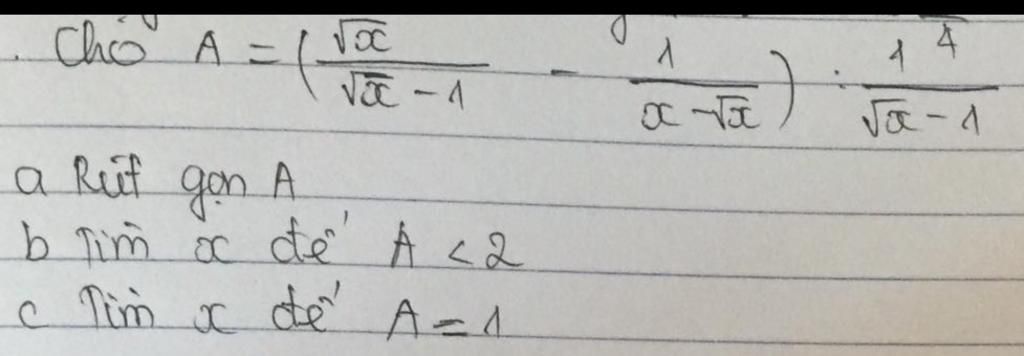 . Cho A = (√x / (√x - 1) - 1 / (x - √x)) : 1 / (√x - 1)
a Rút gọn A
b Tìm x để A < 2
c Tìm x để A = 1